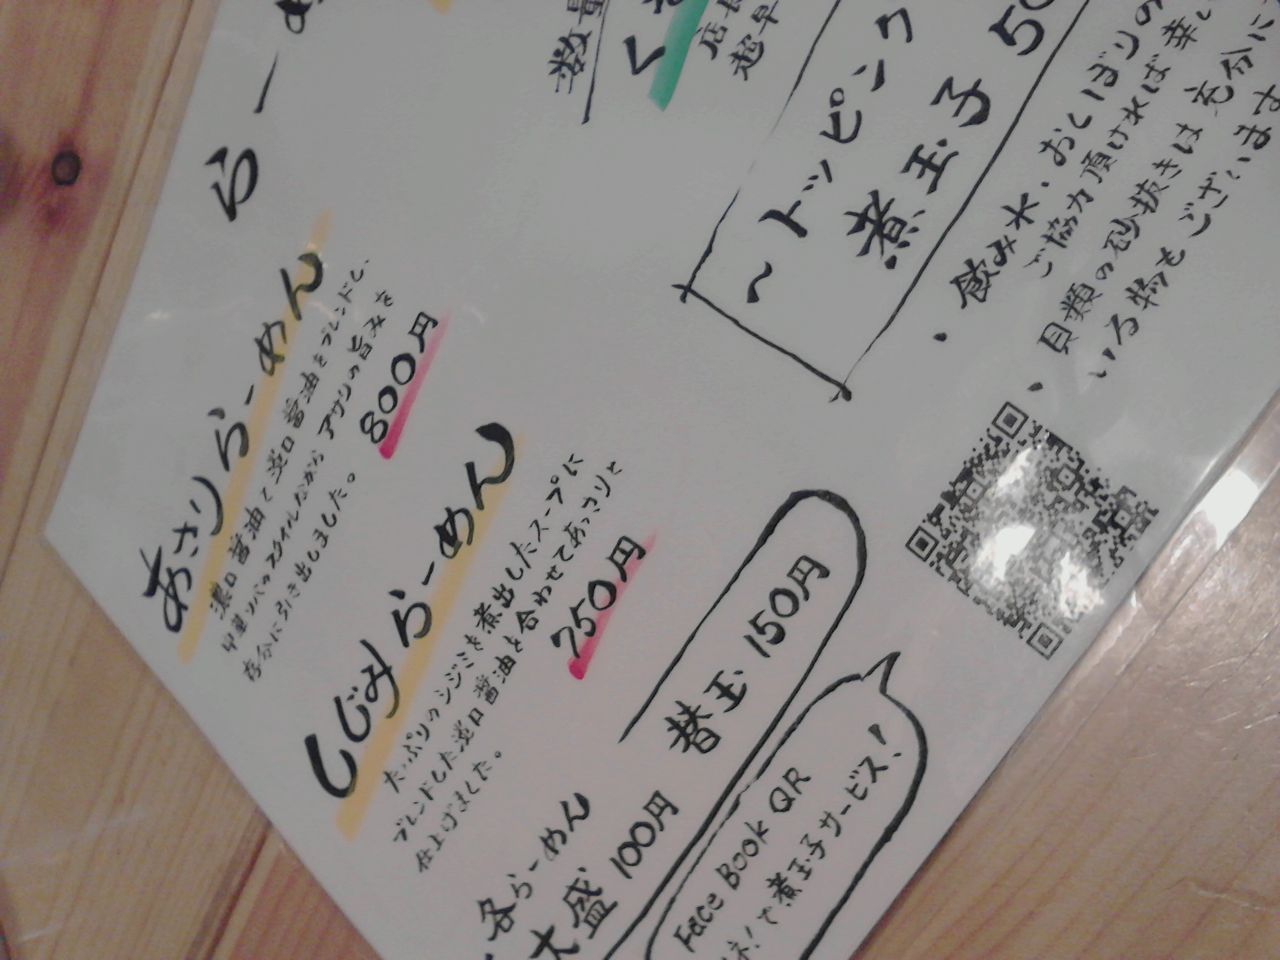 らーめ
あさりらーめん
濃口醤油と淡口醤油をブレンドし、
中華ソバのスタイルながらアサリの旨みを
存分に引き出しました。
800円
しじみらーめん
たっぷりのシジミを煮出したスープに
ブレンドした淡口醤油を合わせてあっさりと
仕上げました。
750円
各らーめん
大盛 100円
替玉 150円
Face Book QR
ネ!で煮玉子サービス!
数量
店長
超早
〜トッピング
煮玉子 50
・飲み水、おしぼりの
ご協力頂ければ幸い
・貝類の砂抜きは充分に
いる物もございます